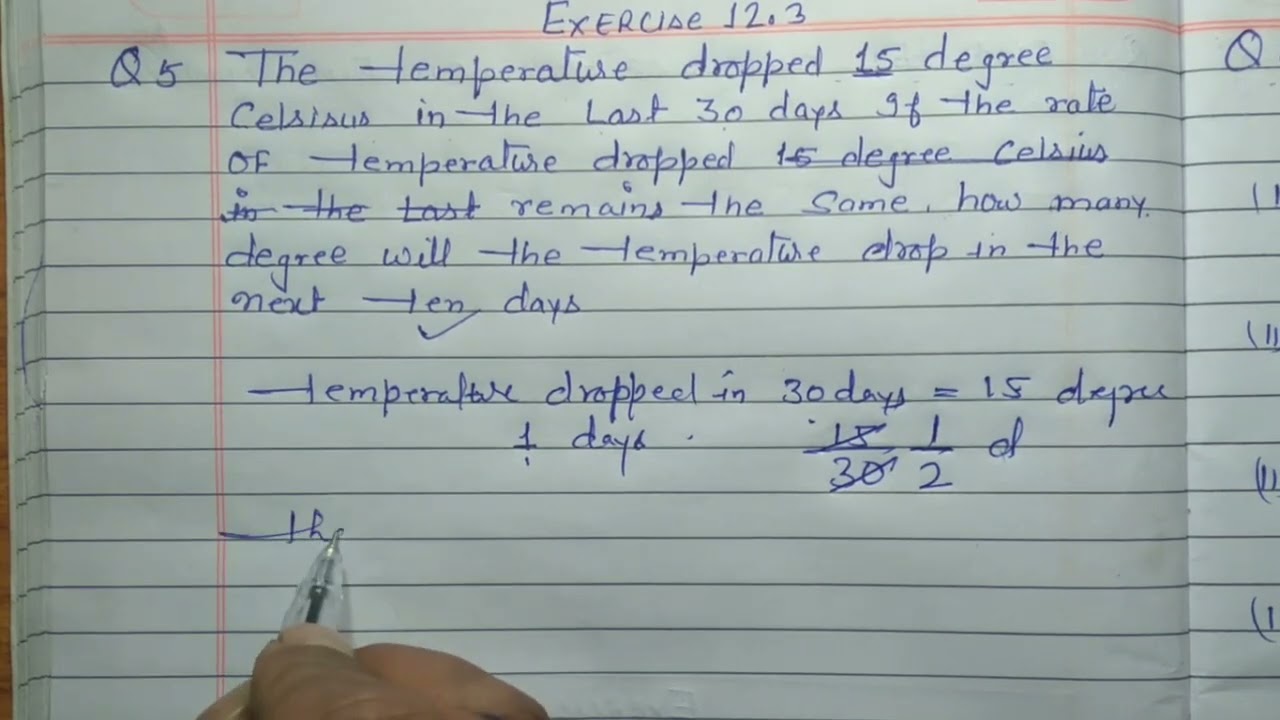 EXERCISE 12.3
Q5 The temperature dropped 15 degree
Celsisus in the Last 30 days If the rate
OF temperature dropped 15 degree Celsius
in the Last remains the Same, how many
degree will the temperature drop in the
next ten days
temperature dropped in 30 days = 15 degree
1 days. 15/30 1/2 d
the
Q
(I
(II
(II
(I